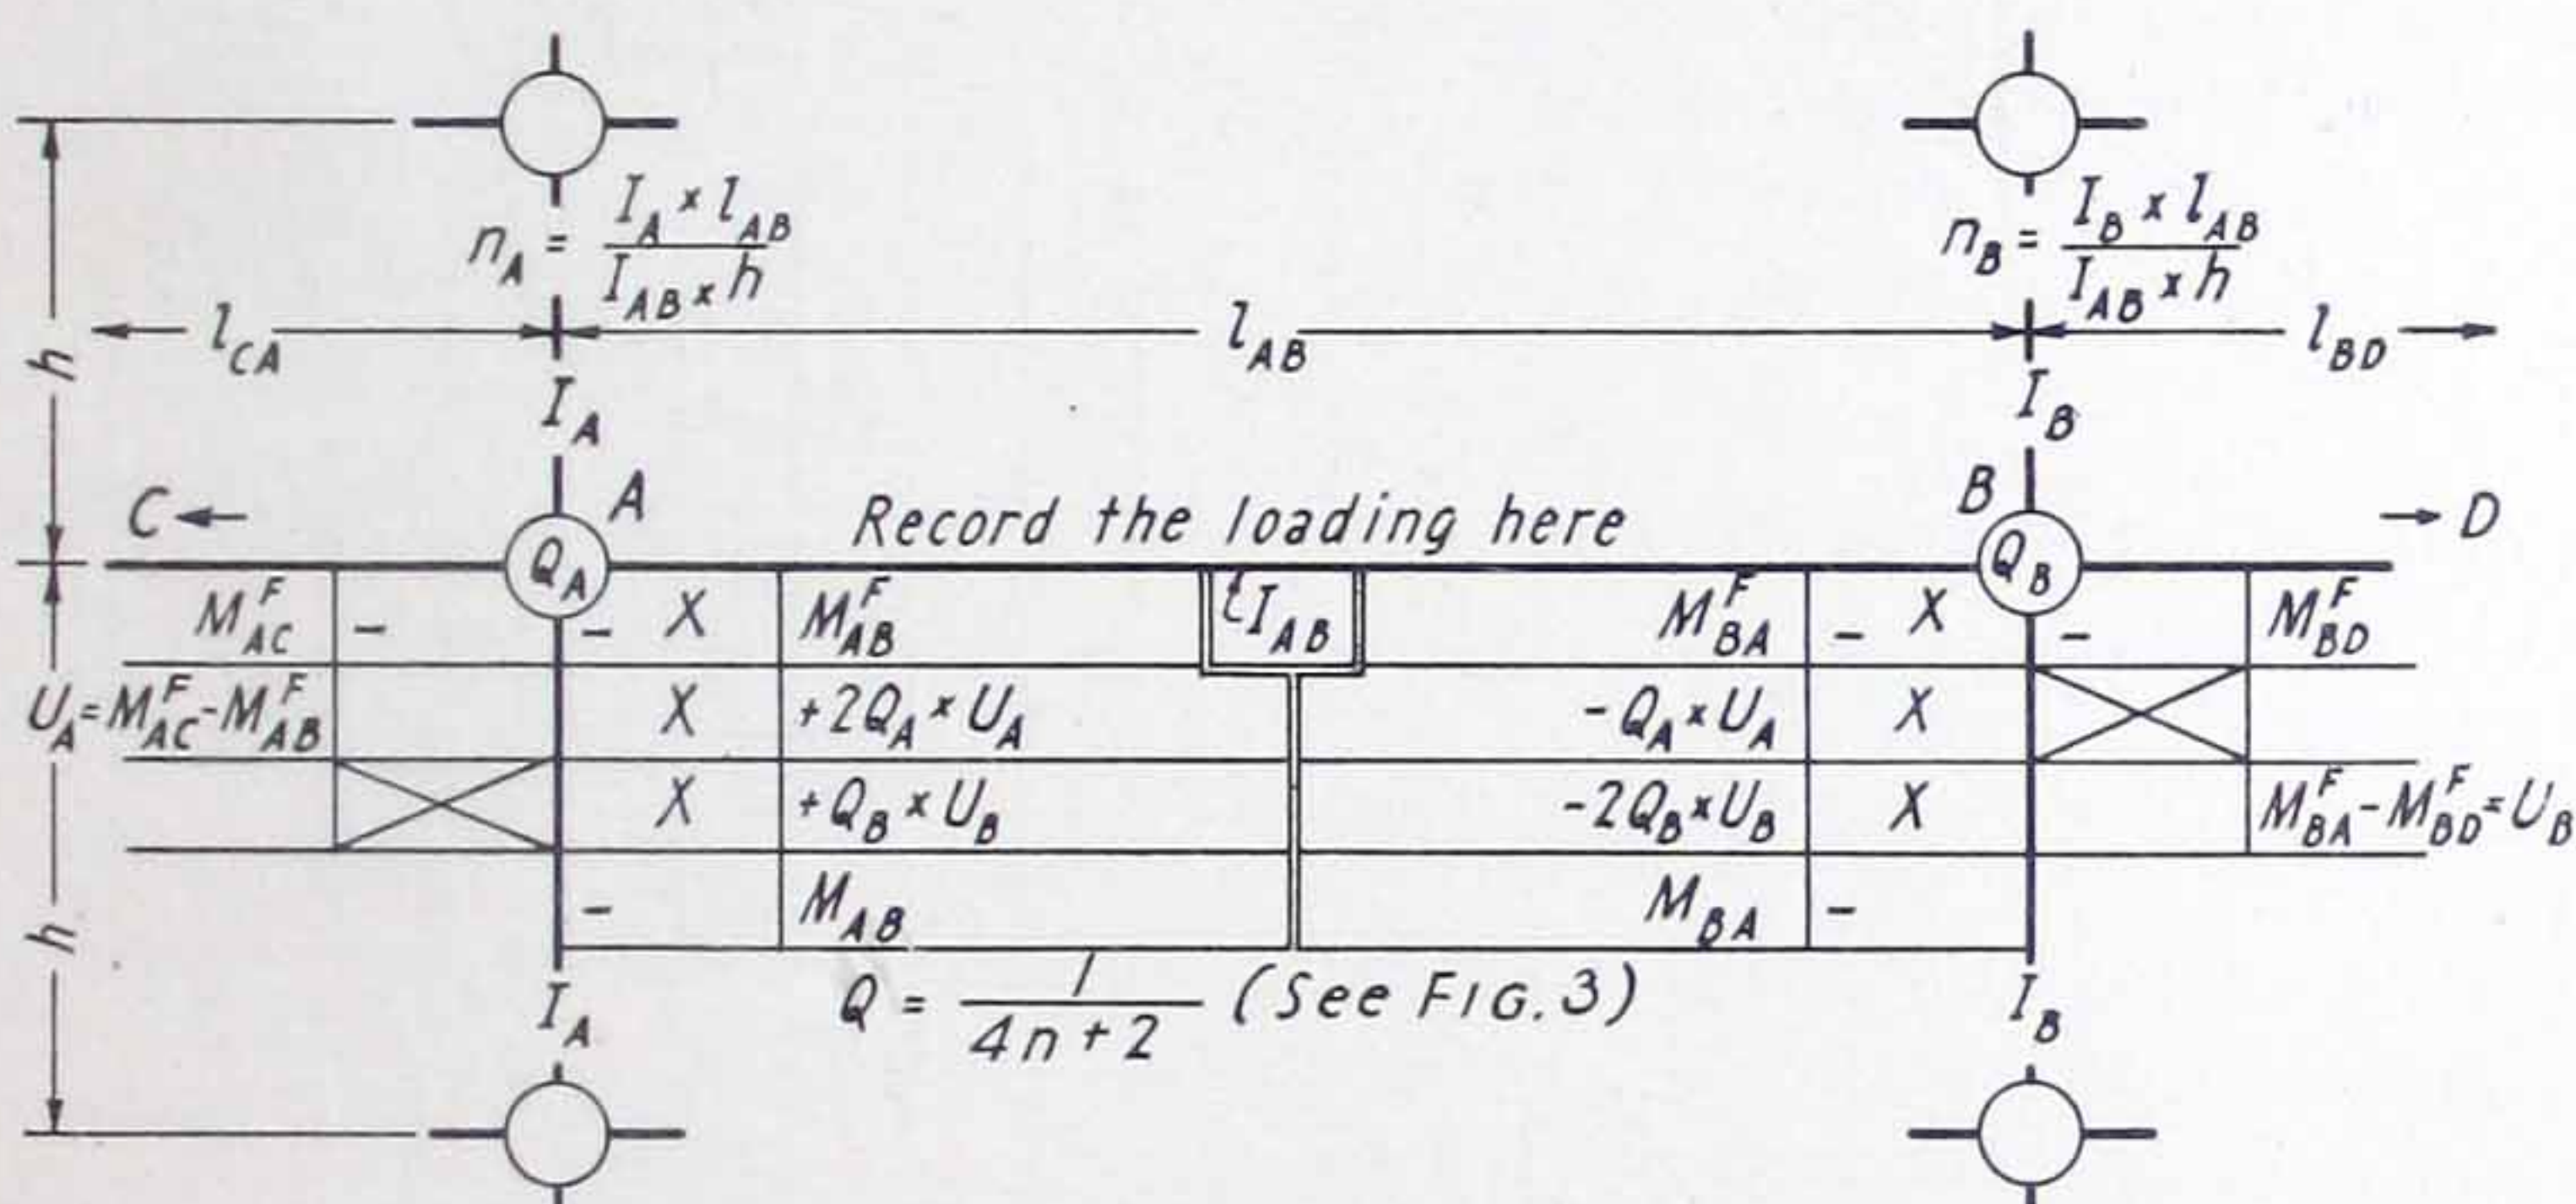 n_A = (I_A × l_AB) / (I_AB × h)
n_B = (I_B × l_AB) / (I_AB × h)
l_CA l_AB l_BD
h
I_A I_B
C ← A Record the loading here B → D
Q_A Q_B
M^F_AC - - X M^F_AB tI_AB M^F_BA - X - M^F_BD
U_A = M^F_AC - M^F_AB X +2Q_A × U_A -Q_A × U_A X
X +Q_B × U_B -2Q_B × U_B X M^F_BA - M^F_BD = U_B
h - M_AB M_BA -
I_A Q = 1 / (4n + 2) (See FIG. 3) I_B